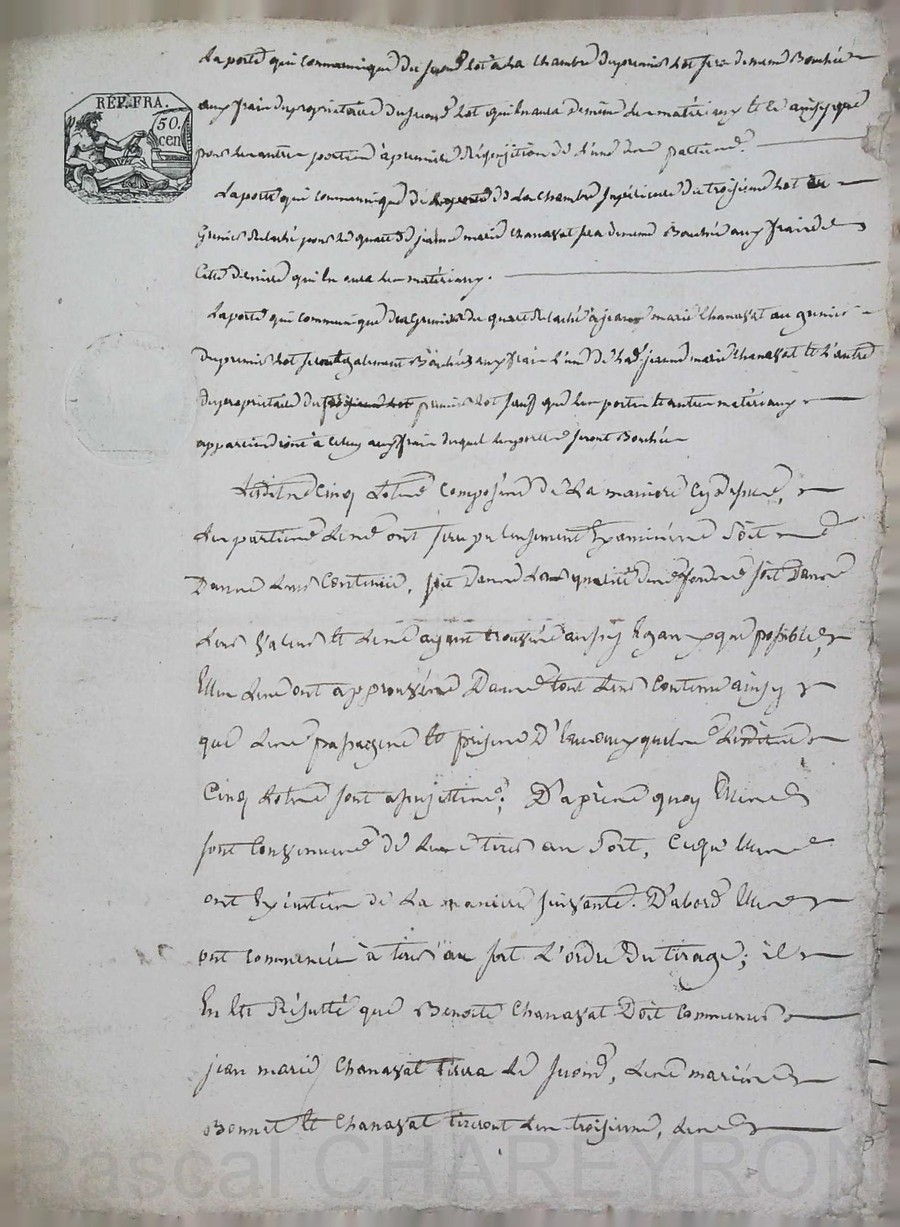 RÉP. FRA.
50. cen
La porte qui communique du second lot à la chambre du premier lot sera de meme Bouchée
aux frais du proprietaire du second lot qui en aura de meme les matériaux et ce ainsy que
pour les autres portes à premiere Réquisition de l'une des parties.
La porte qui communique de la chambre Supérieure du troisieme lot au
Grenier Relaché pour le quart de jeanne marie Chanavat sera de meme Bouchée aux frais de
Cette derniere qui en aura les matériaux.
La porte qui communique du Grenier du quart Relaché à jeanne marie Chanavat au grenier
du premier lot seront également Bouchés aux frais l'une de lad. jeanne marie Chanavat et l'autre
du proprietaire du premier lot sauf que les portes et autres matériaux
appartiendront à Celuy aux frais duquel les portes seront Bouchées
Lesdits Cinq Lots Composés de La maniere Cy dessus,
Les parties Les ont scrupuleusement Examinés Soit
Dans Leur Contenu, soit Dans Leur qualité des fonds soit Dans
Leur Valeur et Les ayant trouvés aussy Egaux que possible,
Elles Les ont approuvés Dans tout Leur Contenu ainsy
que Les passages et prises D'eau auxquels Lesdits
Cinq Lots sont assujettis; D'après quoy Elles
sont Convenues de Les tirer au Sort, Ce qu'Elles
ont Exécuté de La maniere suivante. D'abord Elles
ont commencé à tirer au sort L'ordre Du tirage; il
En Est Résulté que Benoite Chanavat Doit Commencer
jean marie Chanavat tirera Le second, Les mariés
Bonnet et Chanavat tireront Les troisieme, Les
Pascal CHAREYRON